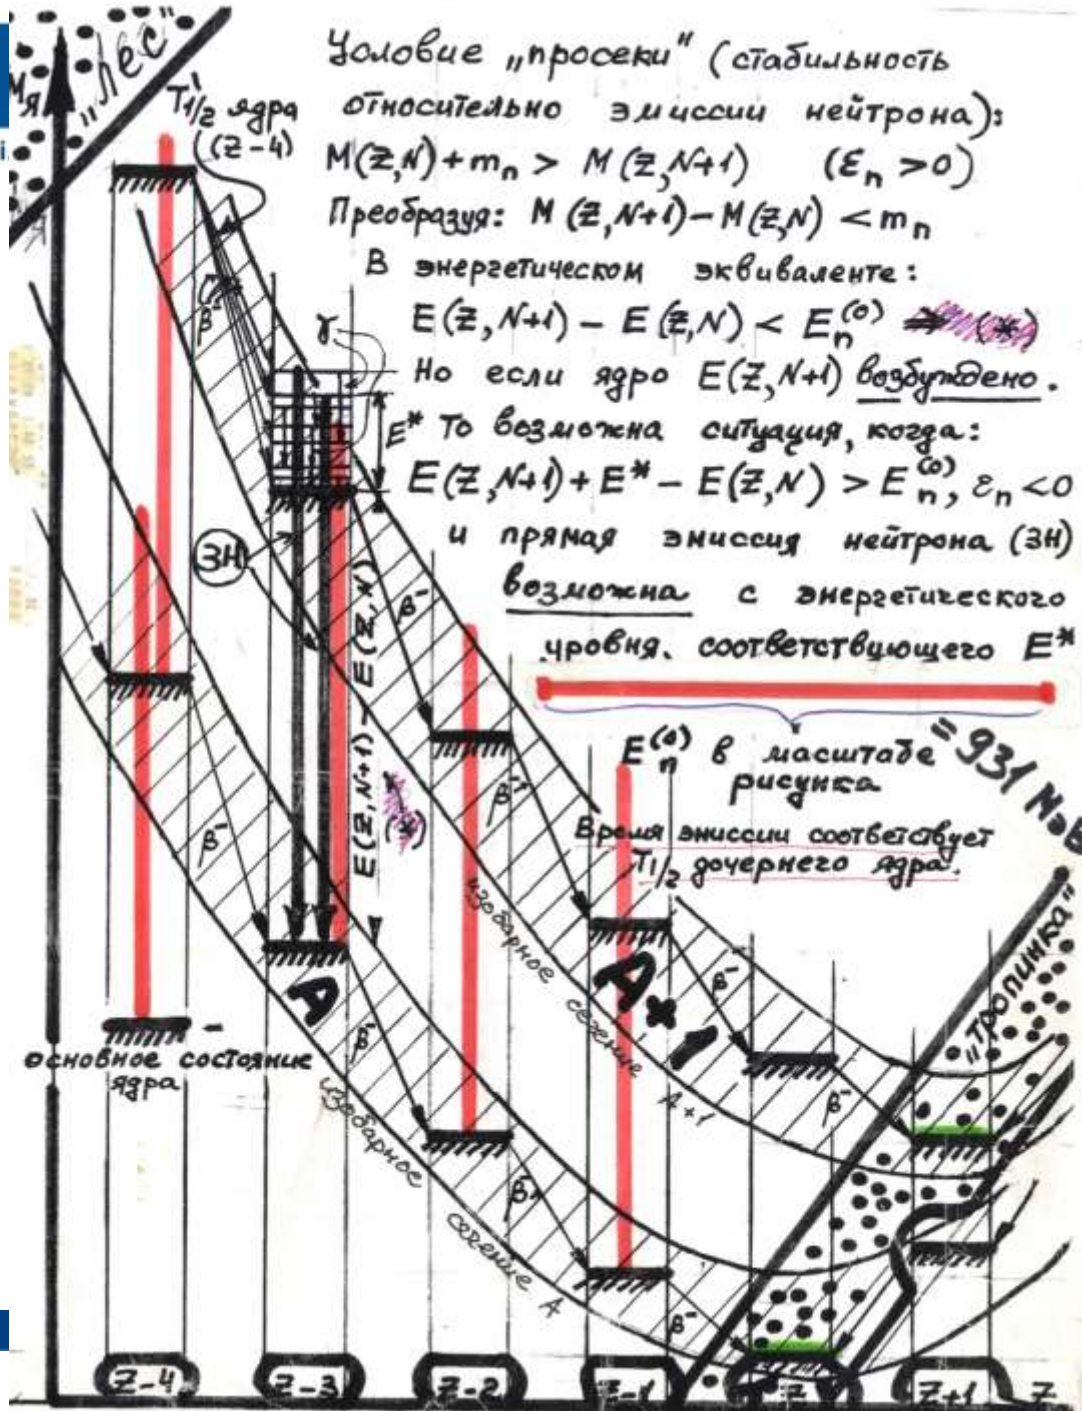 Mя
"Лес"
T1/2 ядра
(Z-4)
Условие „просеки" (стабильность
относительно эмиссии нейтрона):
M(Z,N)+mₙ > M(Z,N+1) (Ɛₙ>0)
Преобразуя: M(Z,N+1)-M(Z,N) < mₙ
В энергетическом эквиваленте:
E(Z,N+1) - E(Z,N) < Eₙ⁽⁰⁾ (*)
Но если ядро E(Z,N+1) возбуждено.
E* То возможна ситуация, когда:
E(Z,N+1)+E* - E(Z,N) > Eₙ⁽⁰⁾, εₙ<0
и прямая эмиссия нейтрона (ЗН)
возможна с энергетического
уровня, соответствующего E*
Eₙ⁽⁰⁾ в масштабе
рисунка
=931 МэВ
Время эмиссии соответствует
T1/2 дочернего ядра.
γ
β⁻
ЗН
β⁻
E(Z,N+1) - E(Z,N)
(*)
β⁻
β⁻
изобарное сечение A+1
A
A+1
β⁻
β⁻
β⁻
"тропинка"
основное состояние
ядра
изобарное сечение A
β⁻
β⁻
Z-4 Z-3 Z-2 Z-1 Z Z+1 Z